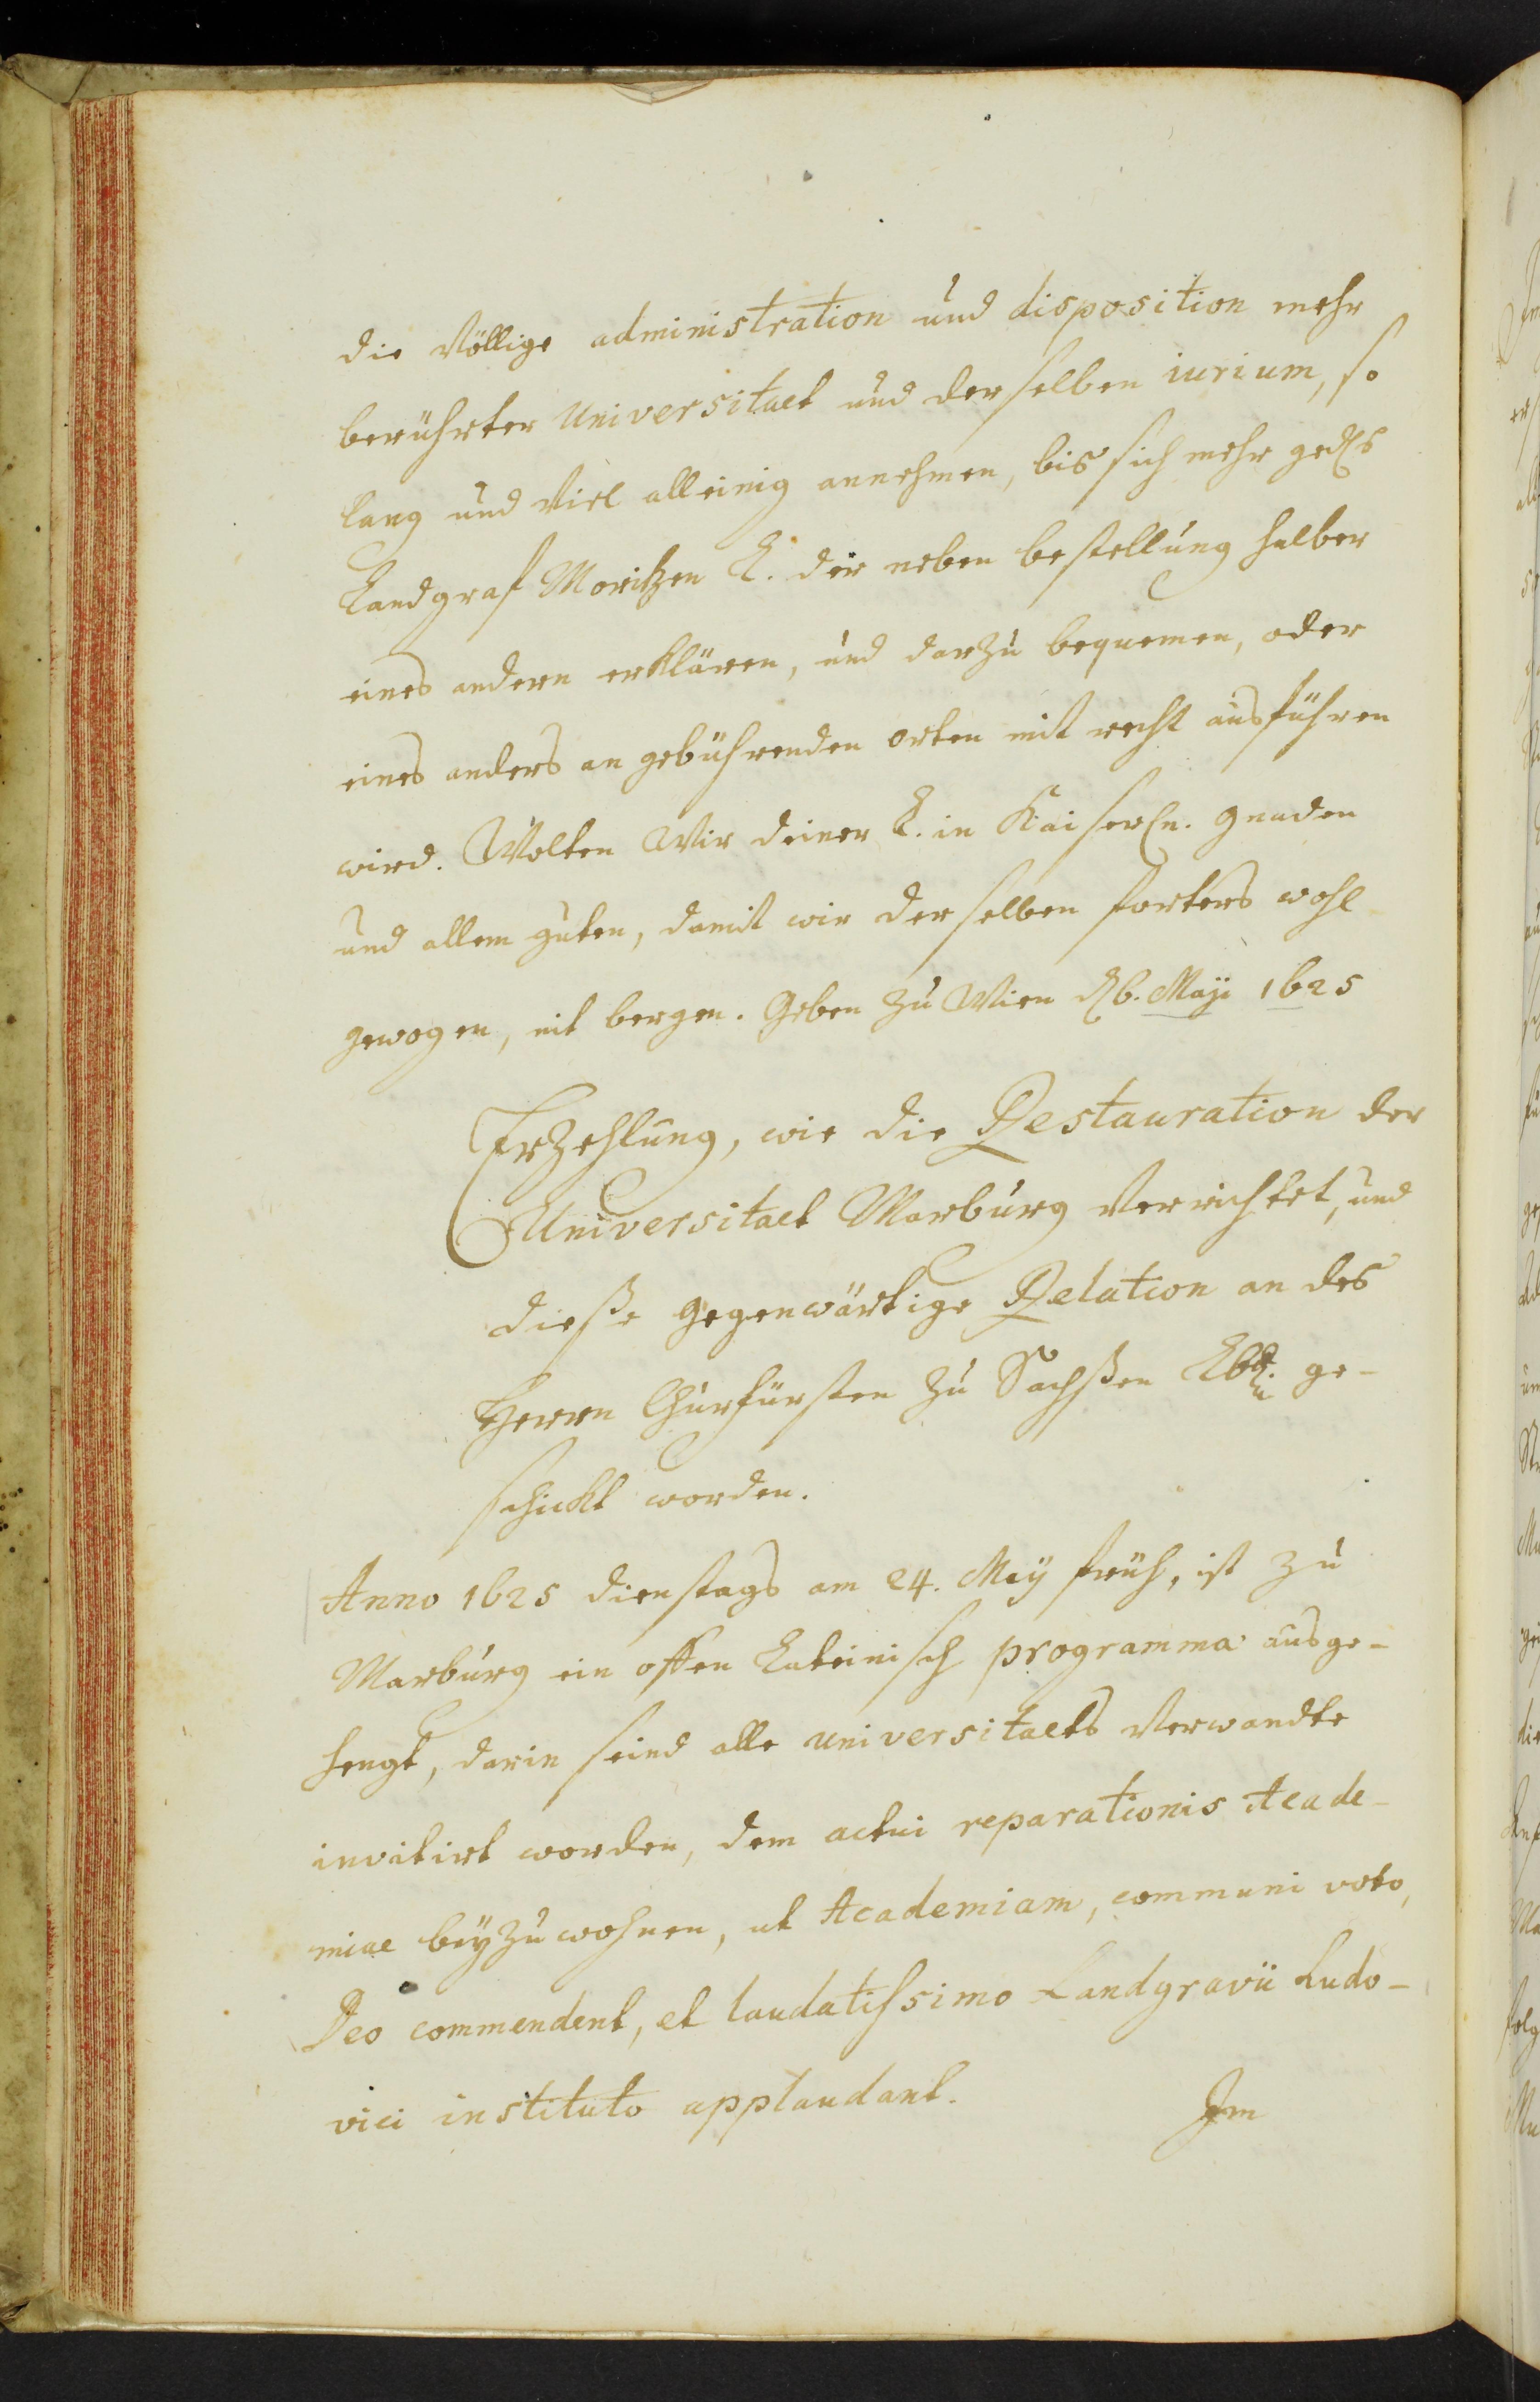 die völlige administration und disposition mehr
berührter Universitaet und derselben iurium, so
lang und viel alleinig annehmen, bis sich mehr gedls
Landgraf Moritzen L. der neben bestellung halber
eines andern erklären, und darzu bequemen, oder
eines anders an gebührenden orten mit recht ausführen
wird. Wolten Wir deiner L. in Kaiserln. Gnaden
und allem guten, damit wir derselben forters wohl
gewogen, nit bergen. Geben zu Wien Maji 1625
Erzehlung, wie die Restauration der
Universitaet Marburg verrichtet, und
dieße gegenwärtige Relation an des
Herrn Churfürsten zu Sachßen ge-
schickt worden.
Anno 1625 dienstags am 24. Maij früh, ist zu
Marburg ein offen Lateinisch programma ausge-
hengt, darin seind alle universitaets Verwandte
invitirt worden, dem actui reparationis Acade-
miae beyzuwohnen, ut Academiam, communi voto,
Deo commendent, et laudatissimo Landgravii Ludo-
vici instituto applaudant.
Im